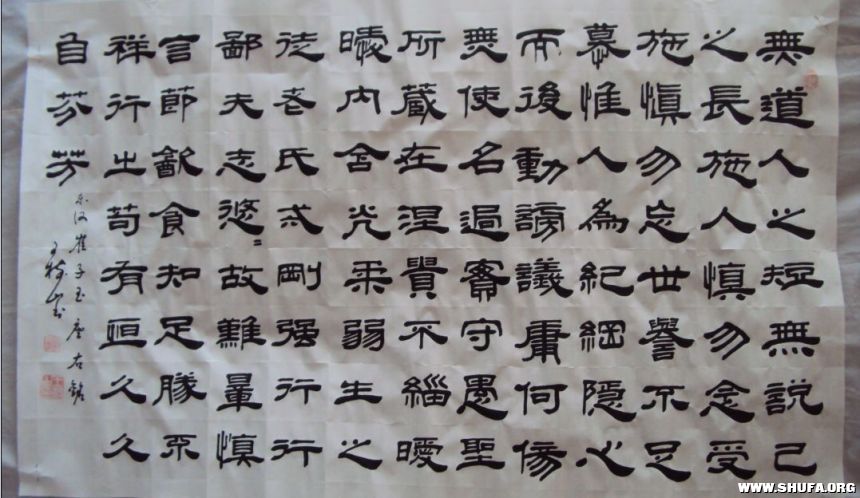 無道人之短無說己
之長施人慎勿念受
施慎勿忘世譽不足
慕惟人為紀綱隱心
而後動謗議庸何傷
無使名過實守愚聖
所藏在涅貴不緇曖
曖內含光柔弱生之
徒老氏戒剛强行行
鄙夫志悠〻故難量慎
言節飲食知足勝不
祥行之苟有恒久久
自芬芳
東漢崔子玉座右銘
WWW.SHUFA.ORG